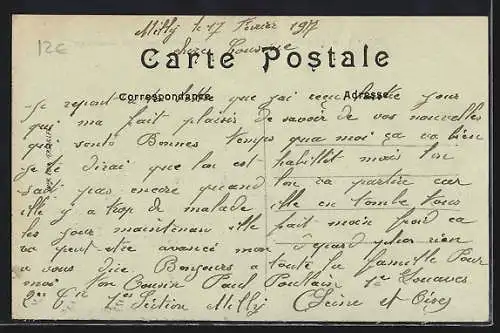 12€
Milly le 17 Février 1917
chère Cousine
Carte Postale
Correspondance Adresse
Je répont a ta lettre que j'ai reçu hatre jour
qui ma fait plaisir de savoir de vos nouvelles
qui sonts Bonnes temps qua moi ça va bien
je te dirai que lon est habillet mais lon
sait pas encore quand lon va partire car
ille y a trop de malade ille en tombe tous
les jour maintenan ille fait moin froid ca
va peut etre avancé mon départ plus rien
a vous dire. Bonjours a toute la famille Pour
moi. Ton Cousin Paul Poulain 1er Zouaves
Section Milly (Seine et Oise)